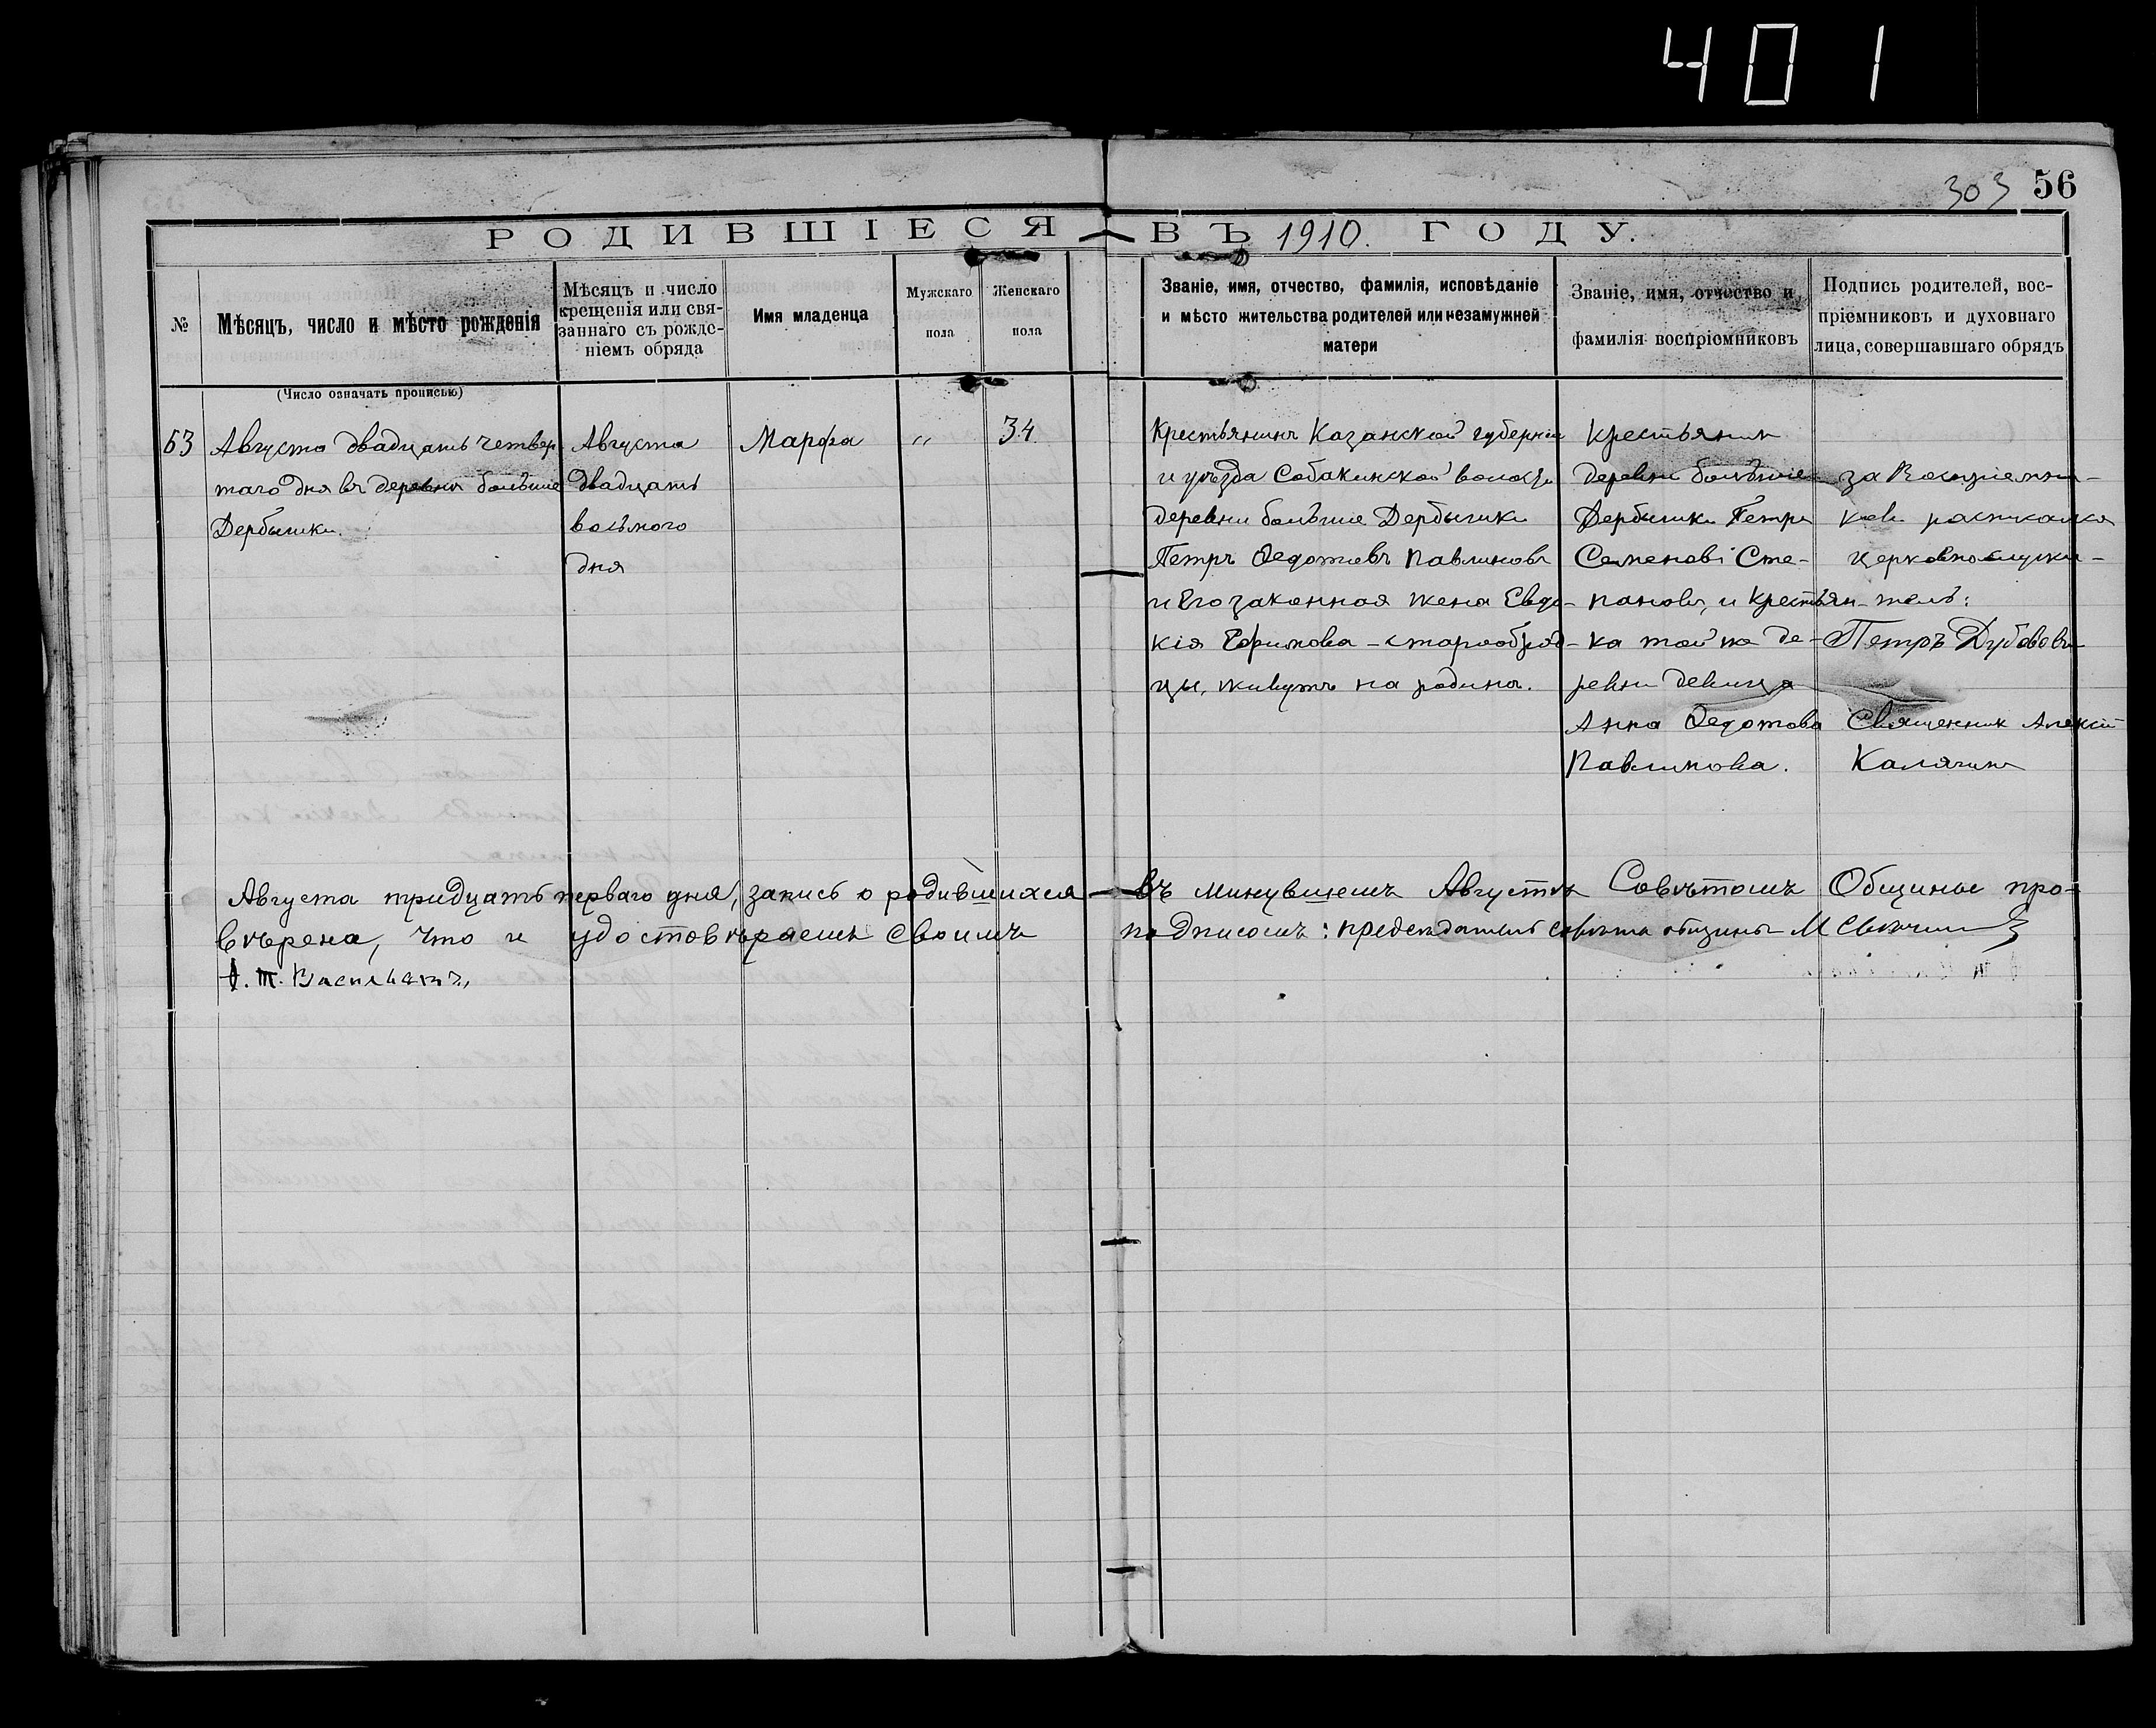 401
303 56
РОДИВШІЕСЯ ВЪ 1910. ГОДУ.
№
Мѣсяцъ, число и мѣсто рожденія
Мѣсяцъ и число
крещенія или свя-
заннаго съ рожде-
ніемъ обряда
Имя младенца
Мужскаго
пола
Женскаго
пола
Званіе, имя, отчество, фамилія, исповѣданіе
и мѣсто жительства родителей или незамужней
матери
Званіе, имя, отчество и
фамилія воспріемниковъ
Подпись родителей, вос-
пріемниковъ и духовнаго
лица, совершавшаго обрядъ
(Число означать прописью)
53
Августа двадцать четвер-
таго дня въ деревни большие
Дербышки.
Августа
двадцать
восьмого
дня
Марфа
"
34
Крестьянинъ Казанской губерніи
и уѣзда Собакинской волости
деревни большие Дербышки
Петръ Федотовъ Павлиновъ
и Его законная жена Евдо-
кія Ефимова - старообряд-
цы, живутъ на родинѣ.
Крестьянин
деревни большие
Дербышки Петръ
Семенові Сте-
пановъ, и Крестьян-
ка той же де-
ревни девица
Анна Федотова
Павлинова.
за Воспріемни-
ков
церковнослужи-
тель:
Петръ Дубовов
Священник Алексій
Калягин
Августа тридцать перваго дня, запись о родившихся въ минувшемъ Августѣ Совѣтомъ Общины про-
вѣрена, что и удостовѣряемъ своимъ подписомъ: председатель совѣта общины М
Ѳ. Т. Васильевъ,